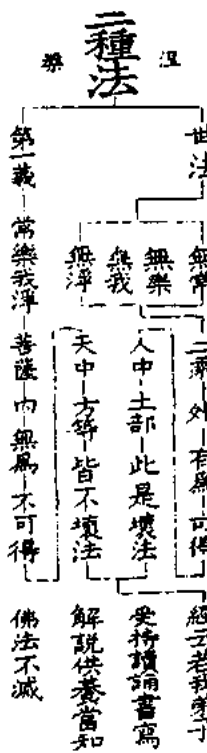 二種法
涅槃
世法
無常
無樂
無我
無淨
二乘 外 有為 可得
人中 土部 此是壞法
天中 方等 皆不壞法
第一義 常樂我淨 菩薩 內 無為 不可得
經云若我弟子
受持讀誦書寫
解說供養當知
佛法不滅